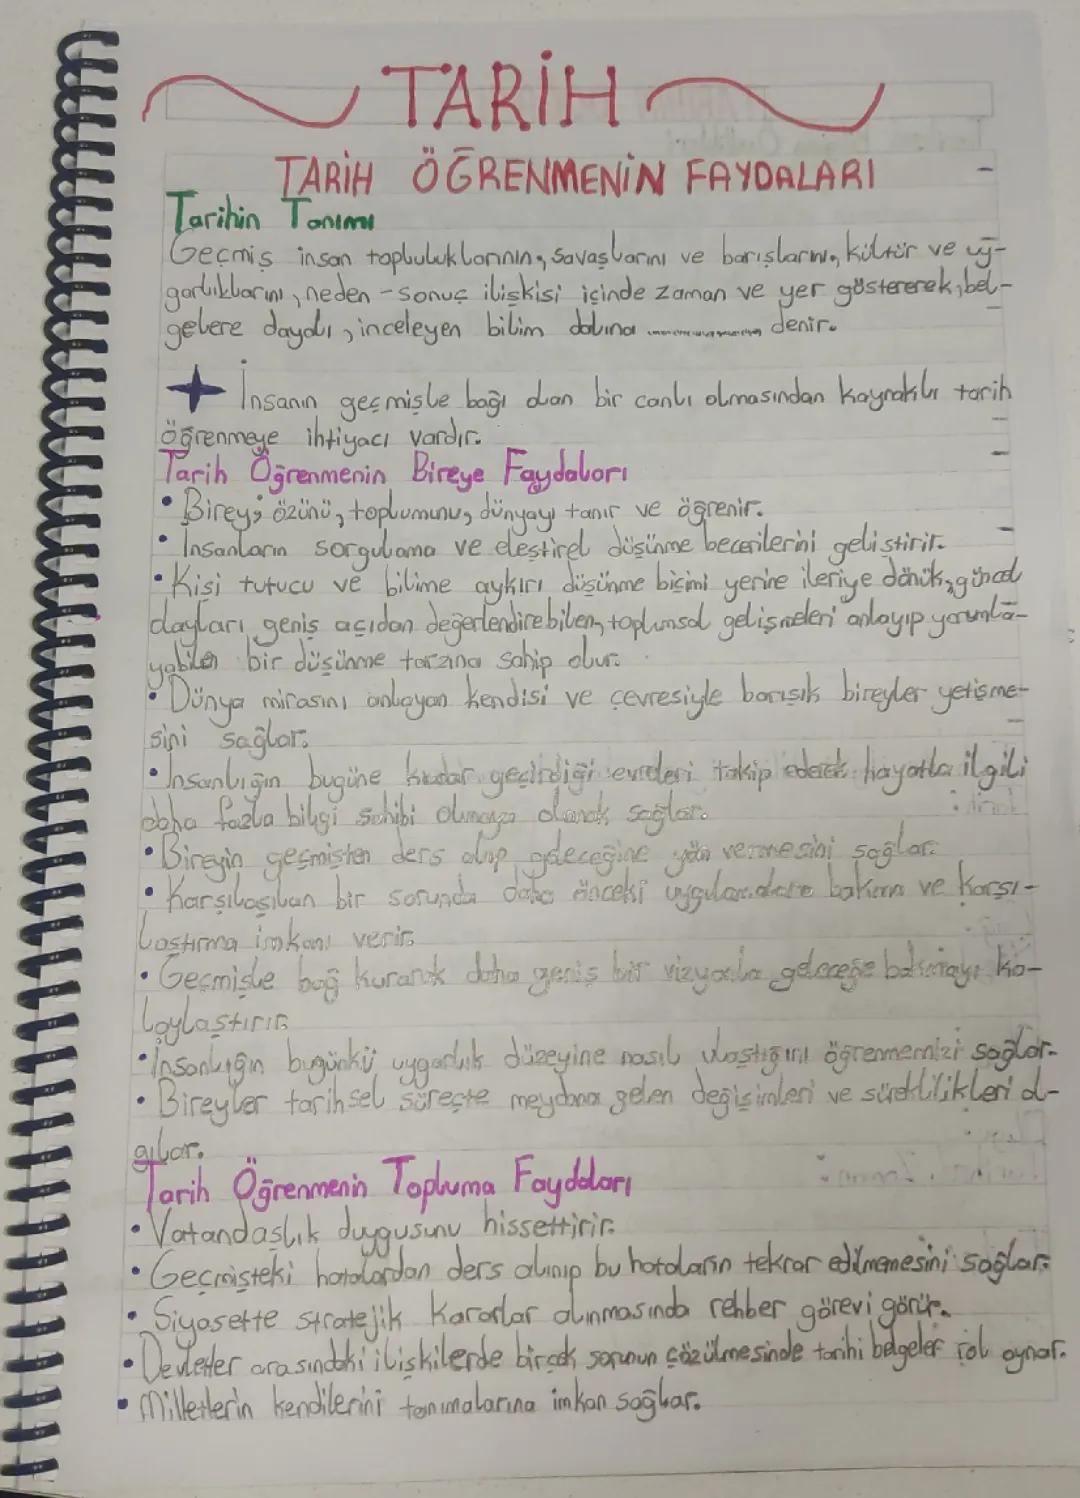 TARİH
TARİH ÖĞRENMENİN FAYDALARI
Tarihin Tanımı
Geçmiş insan topluluklarının, savaşlarını ve barışlarını, kültür ve uy-
garlıklarını, neden-sonuç ilişkisi içinde zaman ve yer göstererek, bel-
gelere dayalı, inceleyen bilim dalına ................ denir.
İnsanın geçmişle bağı olan bir canlı olmasından kaynaklı tarih
öğrenmeye ihtiyacı vardır.
Tarih Öğrenmenin Bireye Faydaları
• Birey; özünü, toplumunu, dünyayı tanır ve öğrenir.
• İnsanların sorgulama ve eleştirel düşünme becerilerini geliştirir.
• Kişi tutucu ve bilime aykırı düşünme biçimi yerine ileriye dönük, güncel
olayları geniş açıdan değerlendirebilen, toplumsal gelişmeleri anlayıp yorumla-
yabilen bir düşünme tarzına sahip olur.
• Dünya mirasını anlayan kendisi ve çevresiyle barışık bireyler yetişme-
sini sağlar.
• İnsanlığın bugüne kadar geçirdiği evreleri takip ederek hayatla ilgili
daha fazla bilgi sahibi olmaya olanak sağlar.
• Bireyin geçmişten ders alıp geleceğine yön vermesini sağlar.
• Karşılaşılan bir sorunda daha önceki uygulamalara bakma ve karşı-
laştırma imkanı verir.
• Geçmişle bağ kurarak daha geniş bir vizyonla geleceğe bakmayı ko-
laylaştırır.
• İnsanlığın bugünkü uygarlık düzeyine nasıl ulaştığını öğrenmemizi sağlar.
• Bireyler tarihsel süreçte meydana gelen değişimleri ve süreklilikleri al-
gılar.
Tarih Öğrenmenin Topluma Faydaları
• Vatandaşlık duygusunu hissettirir.
• Geçmişteki hatalardan ders alınıp bu hataların tekrar edilmemesini sağlar.
• Siyasette stratejik kararlar alınmasında rehber görevi görür.
• Devletler arasındaki ilişkilerde birçok sorunun çözülmesinde tarihi belgeler rol oynar.
• Milletlerin kendilerini tanımalarına imkan sağlar.